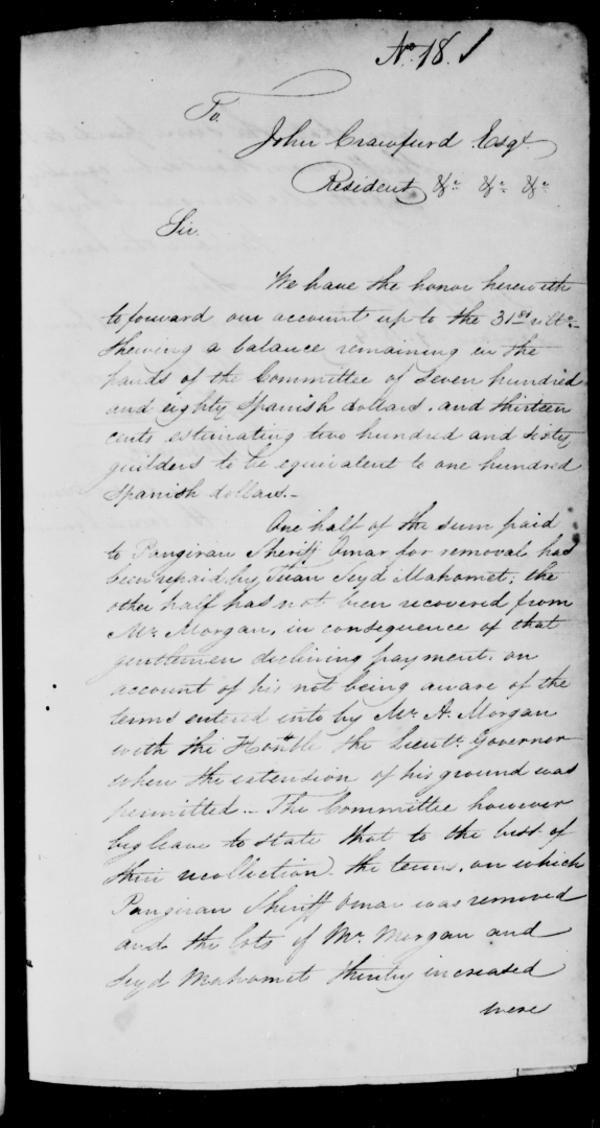 No. 18.
To
John Crawfurd Esqr.
Resident &c. &c. &c.
Sir.
We have the honor herewith
to forward our account up to the 31st ulto.
shewing a balance remaining in the
hands of the Committee of Seven hundred
and eighty Spanish dollars, and thirteen
cents estimating two hundred and sixty
guilders to be equivalent to one hundred
Spanish dollars.-
One half of the sum paid
to Pangiran Sheriff Omar for removal had
been repaid by Tuan Seyd Mahomet; the
other half has not been recovered from
Mr. Morgan, in consequence of that
gentlemen declining payment, on
account of his not being aware of the
terms entered into by Mr. A. Morgan
with the Honble the Lieutt. Governor
when the extension of his ground was
permitted.- The Committee however
beg leave to state that to the best of
their recollection the terms, on which
Pangiran Sheriff Omar was removed
and the lots of Mr. Morgan and
Seyd Mahomet thereby increased
were